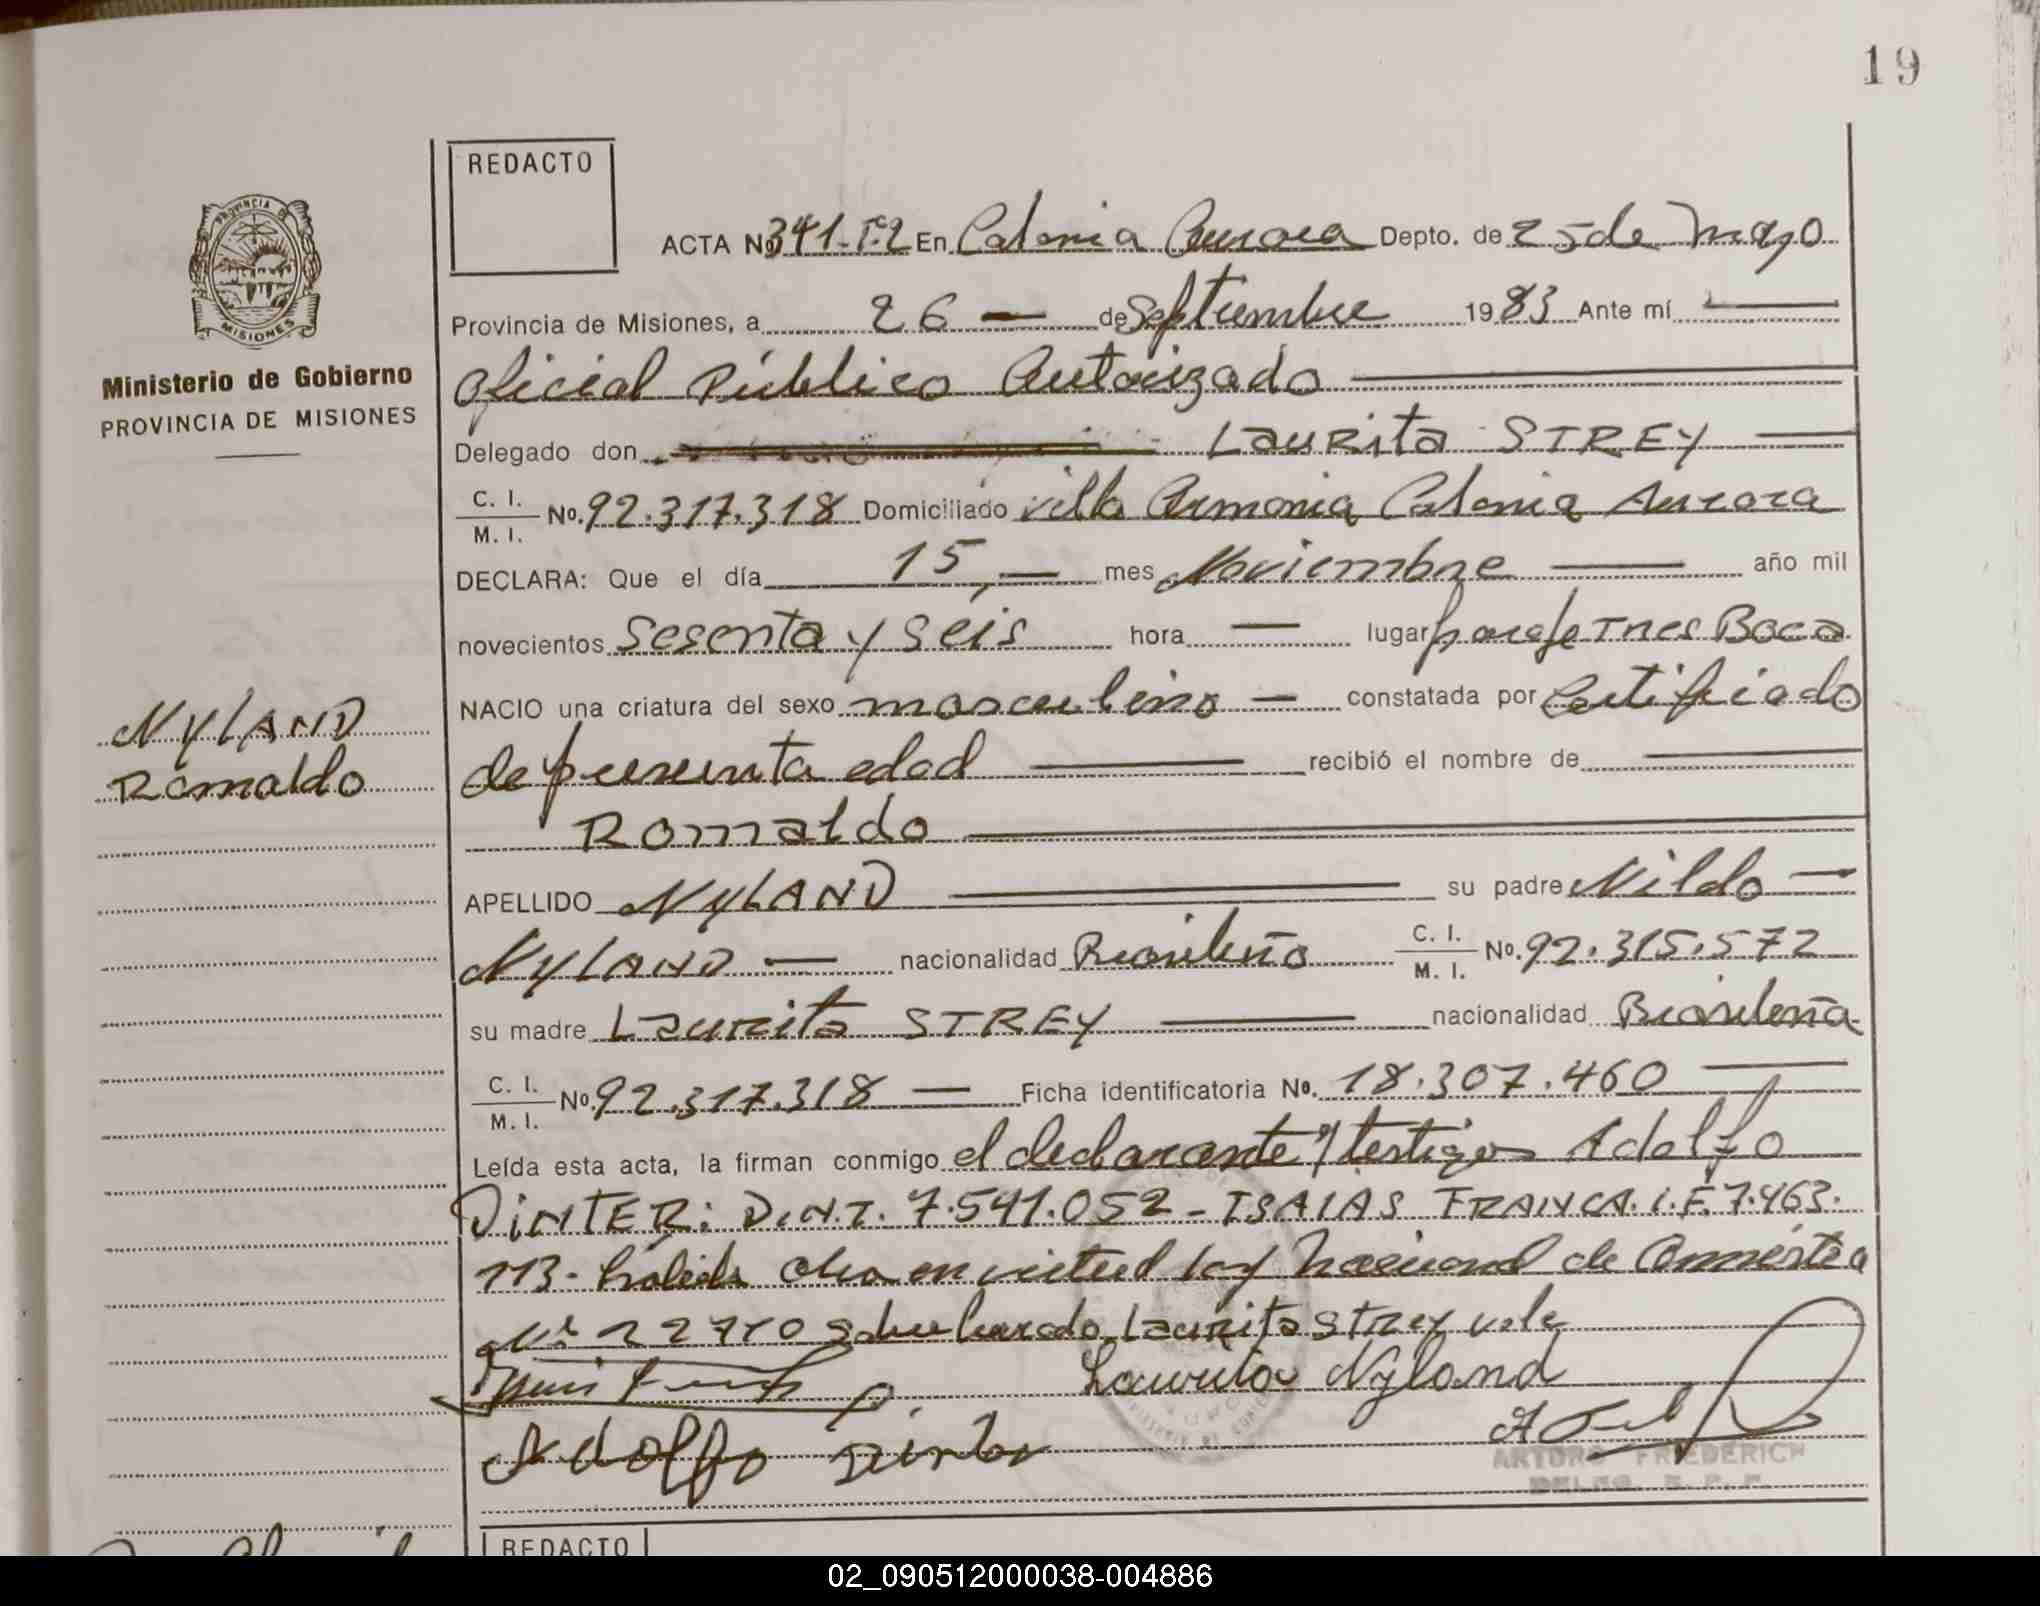 19
REDACTO
PROVINCIA DE
MISIONES
Ministerio de Gobierno
PROVINCIA DE MISIONES
ACTA Nº 341-Tº2 En Colonia Aurora Depto. de 25 de Mayo
Provincia de Misiones, a 26 — de Septiembre 1983 Ante mí —
Oficial Público Autorizado —
Delegado don Laurita STREY —
C. I. / M. I. Nº. 92.317.318 Domiciliado Villa Armonia Colonia Aurora
DECLARA: Que el día 15,— mes Noviembre — año mil
novecientos sesenta y seis hora — lugar paraje Tres Boca
NACIO una criatura del sexo masculino — constatada por Certificado
de presunta edad — recibió el nombre de —
Romaldo —
NYLAND
Romaldo
APELLIDO NYLAND — su padre Nildo —
NYLAND — nacionalidad Brasileño C. I. / M. I. Nº. 92.315.572
su madre Laurita STREY — nacionalidad Brasileña
C. I. / M. I. Nº 92.317.318 — Ficha identificatoria Nº. 18.307.460 —
Leída esta acta, la firman conmigo el declarante y testigos Adolfo
DINTER: D.N.I. 7.541.052 - ISAIAS FRANCA. L.E. 7.463.
113- en virtud Ley Nacional de Amnistia
Nº 22710 sobre borrado Laurita Strey vale
Laurita Nyland
Adolfo Dinter
ARTURO FRIEDERICH
REDACTO
02_090512000038-004886